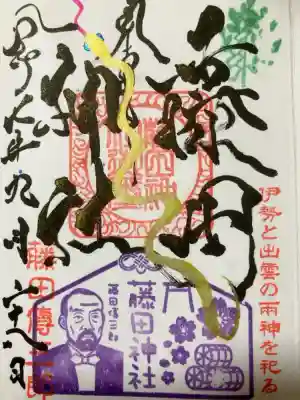 伊勢と出雲の兩神を祀る
奉拝
藤田
神社
九月二十八日
藤田傳三郎
藤田神社
藤田傳三郎